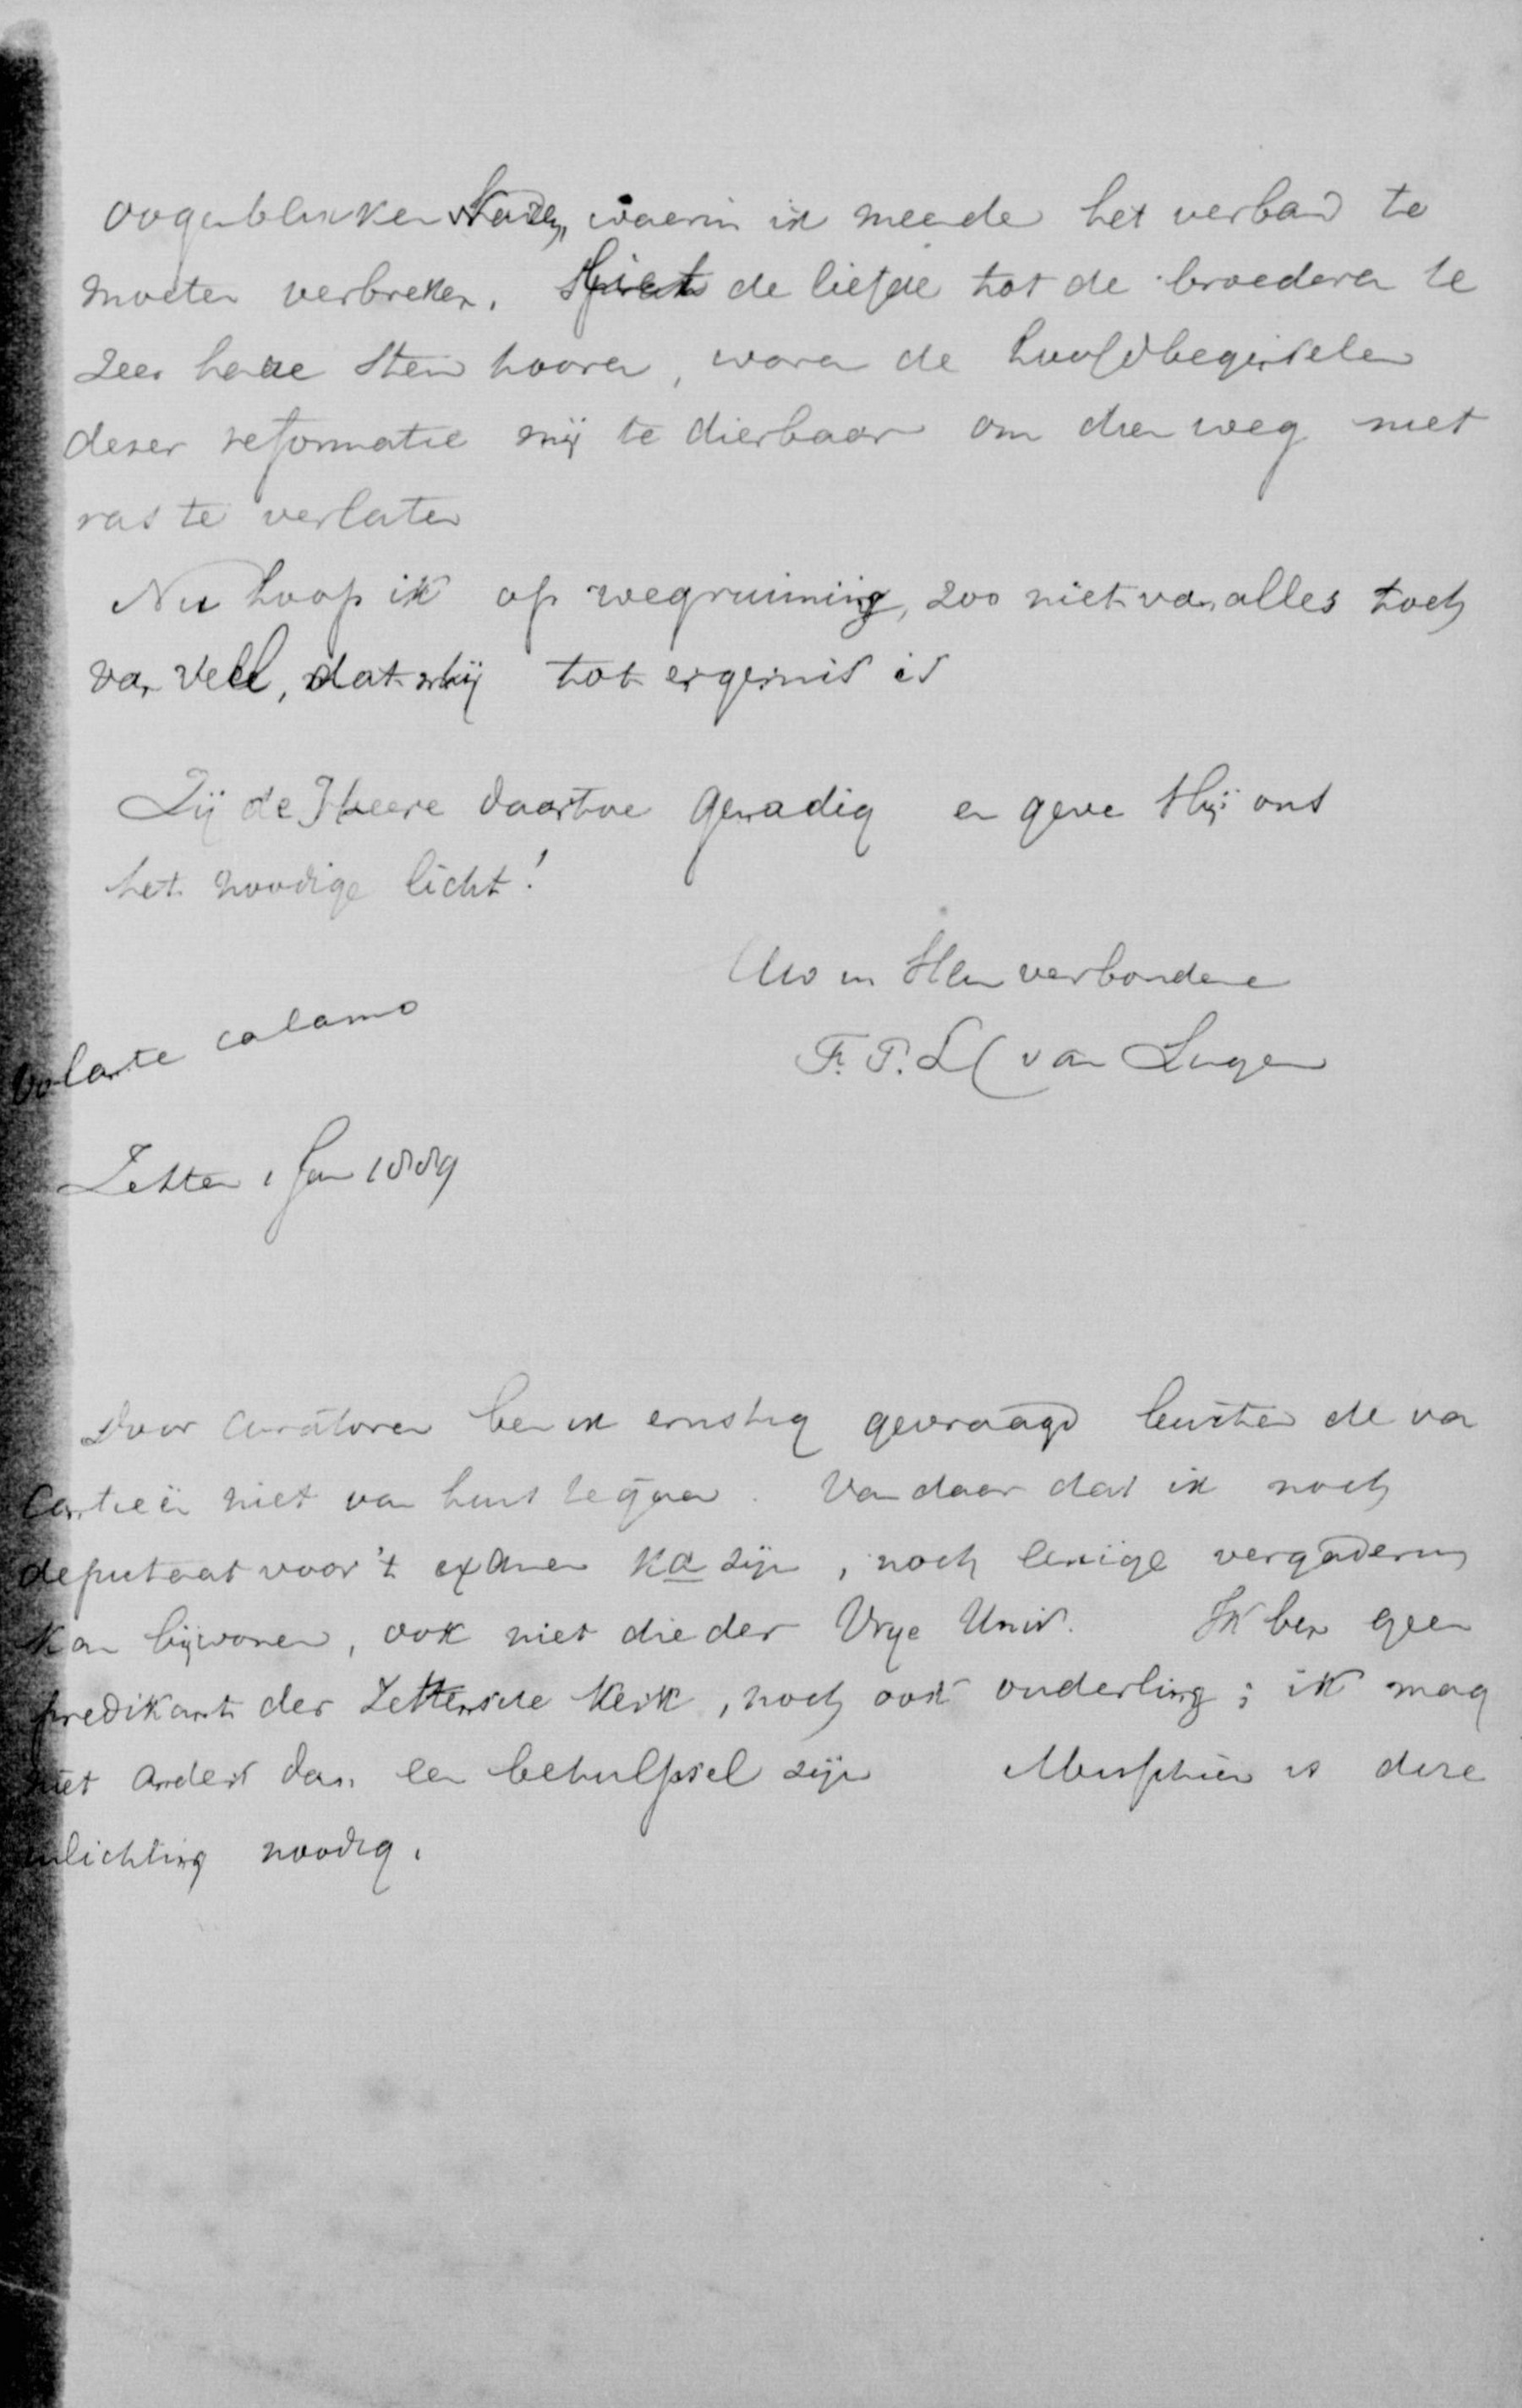 oogenblikken waarin ik meende het verband te
moeten verbreken. de liefde tot de broederen te
zeer hare stem hooren, waren de hoofdbeginselen
dezer reformatie mij te dierbaar om dien weg niet
ras te verlaten
Nu hoop ik op wegruiming, zoo niet van alles toch
van veel, dat mij tot ergernis is
Zij de Heere daartoe genadig en geve Hij ons
het noodige licht!
Uw in Hem verbondene
F. P. L C van Lingen
Volante calamo
Zetten 1 Jan 1889
Door Curatoren ben ik ernstig gevraagd buiten de va
cantieën niet van huis te gaan. Vandaar dat ik noch
deputaat voor 't examen kan zijn, noch eenige vergadering
kan bijwonen, ook niet die der Vrije Univ. Ik ben geen
predikant der Zettensche kerk, noch ook ouderling; ik mag
niet anders dan een behulpsel zijn Misschien is deze
inlichting noodig.